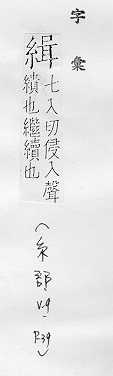 字彙
緝
七入切侵入聲
績也繼續也
(糸部 V9- P.39)